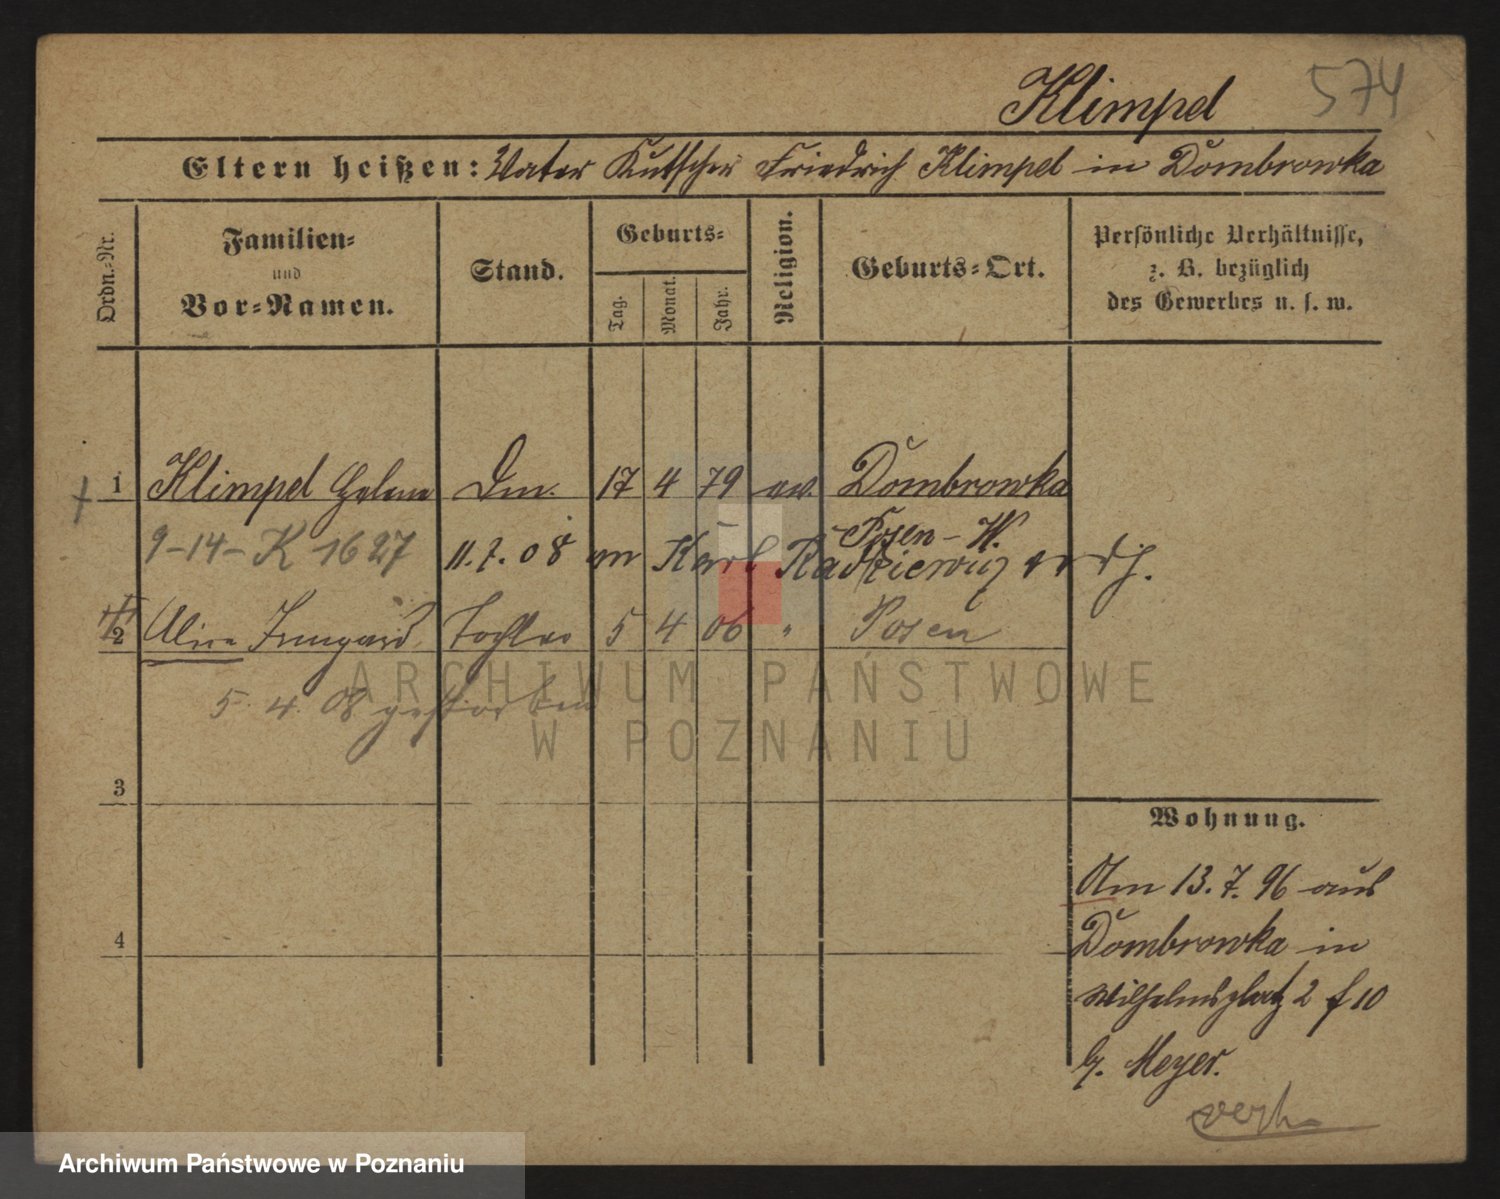 Klimpel 574
Eltern heißen: Vater Kutscher Friedrich Klimpel in Dombrowka
Ordn.-Nr.
Familien-
und
Vor-Namen.
Stand.
Geburts-
Tag.
Monat.
Jahr.
Religion.
Geburts-Ort.
Persönliche Verhältnisse,
z. B. bezüglich
des Gewerbes u. s. w.
1 Klimpel Helene Dm. 17 4 79 ev. Dombrowka
Posen-W.
9-14-K 1627 11.7.08 an Karl Radkiewicz verh.
2 Alice Irmgard Tochter 5 4 06 " Posen
5. 4. 08 gestorben
3
4
Wohnung.
Am 13.7.96 aus
Dombrowka in
Wilhelmsplatz 2 f 10
b. Meyer.
verh.
ARCHIWUM PAŃSTWOWE
W POZNANIU
Archiwum Państwowe w Poznaniu